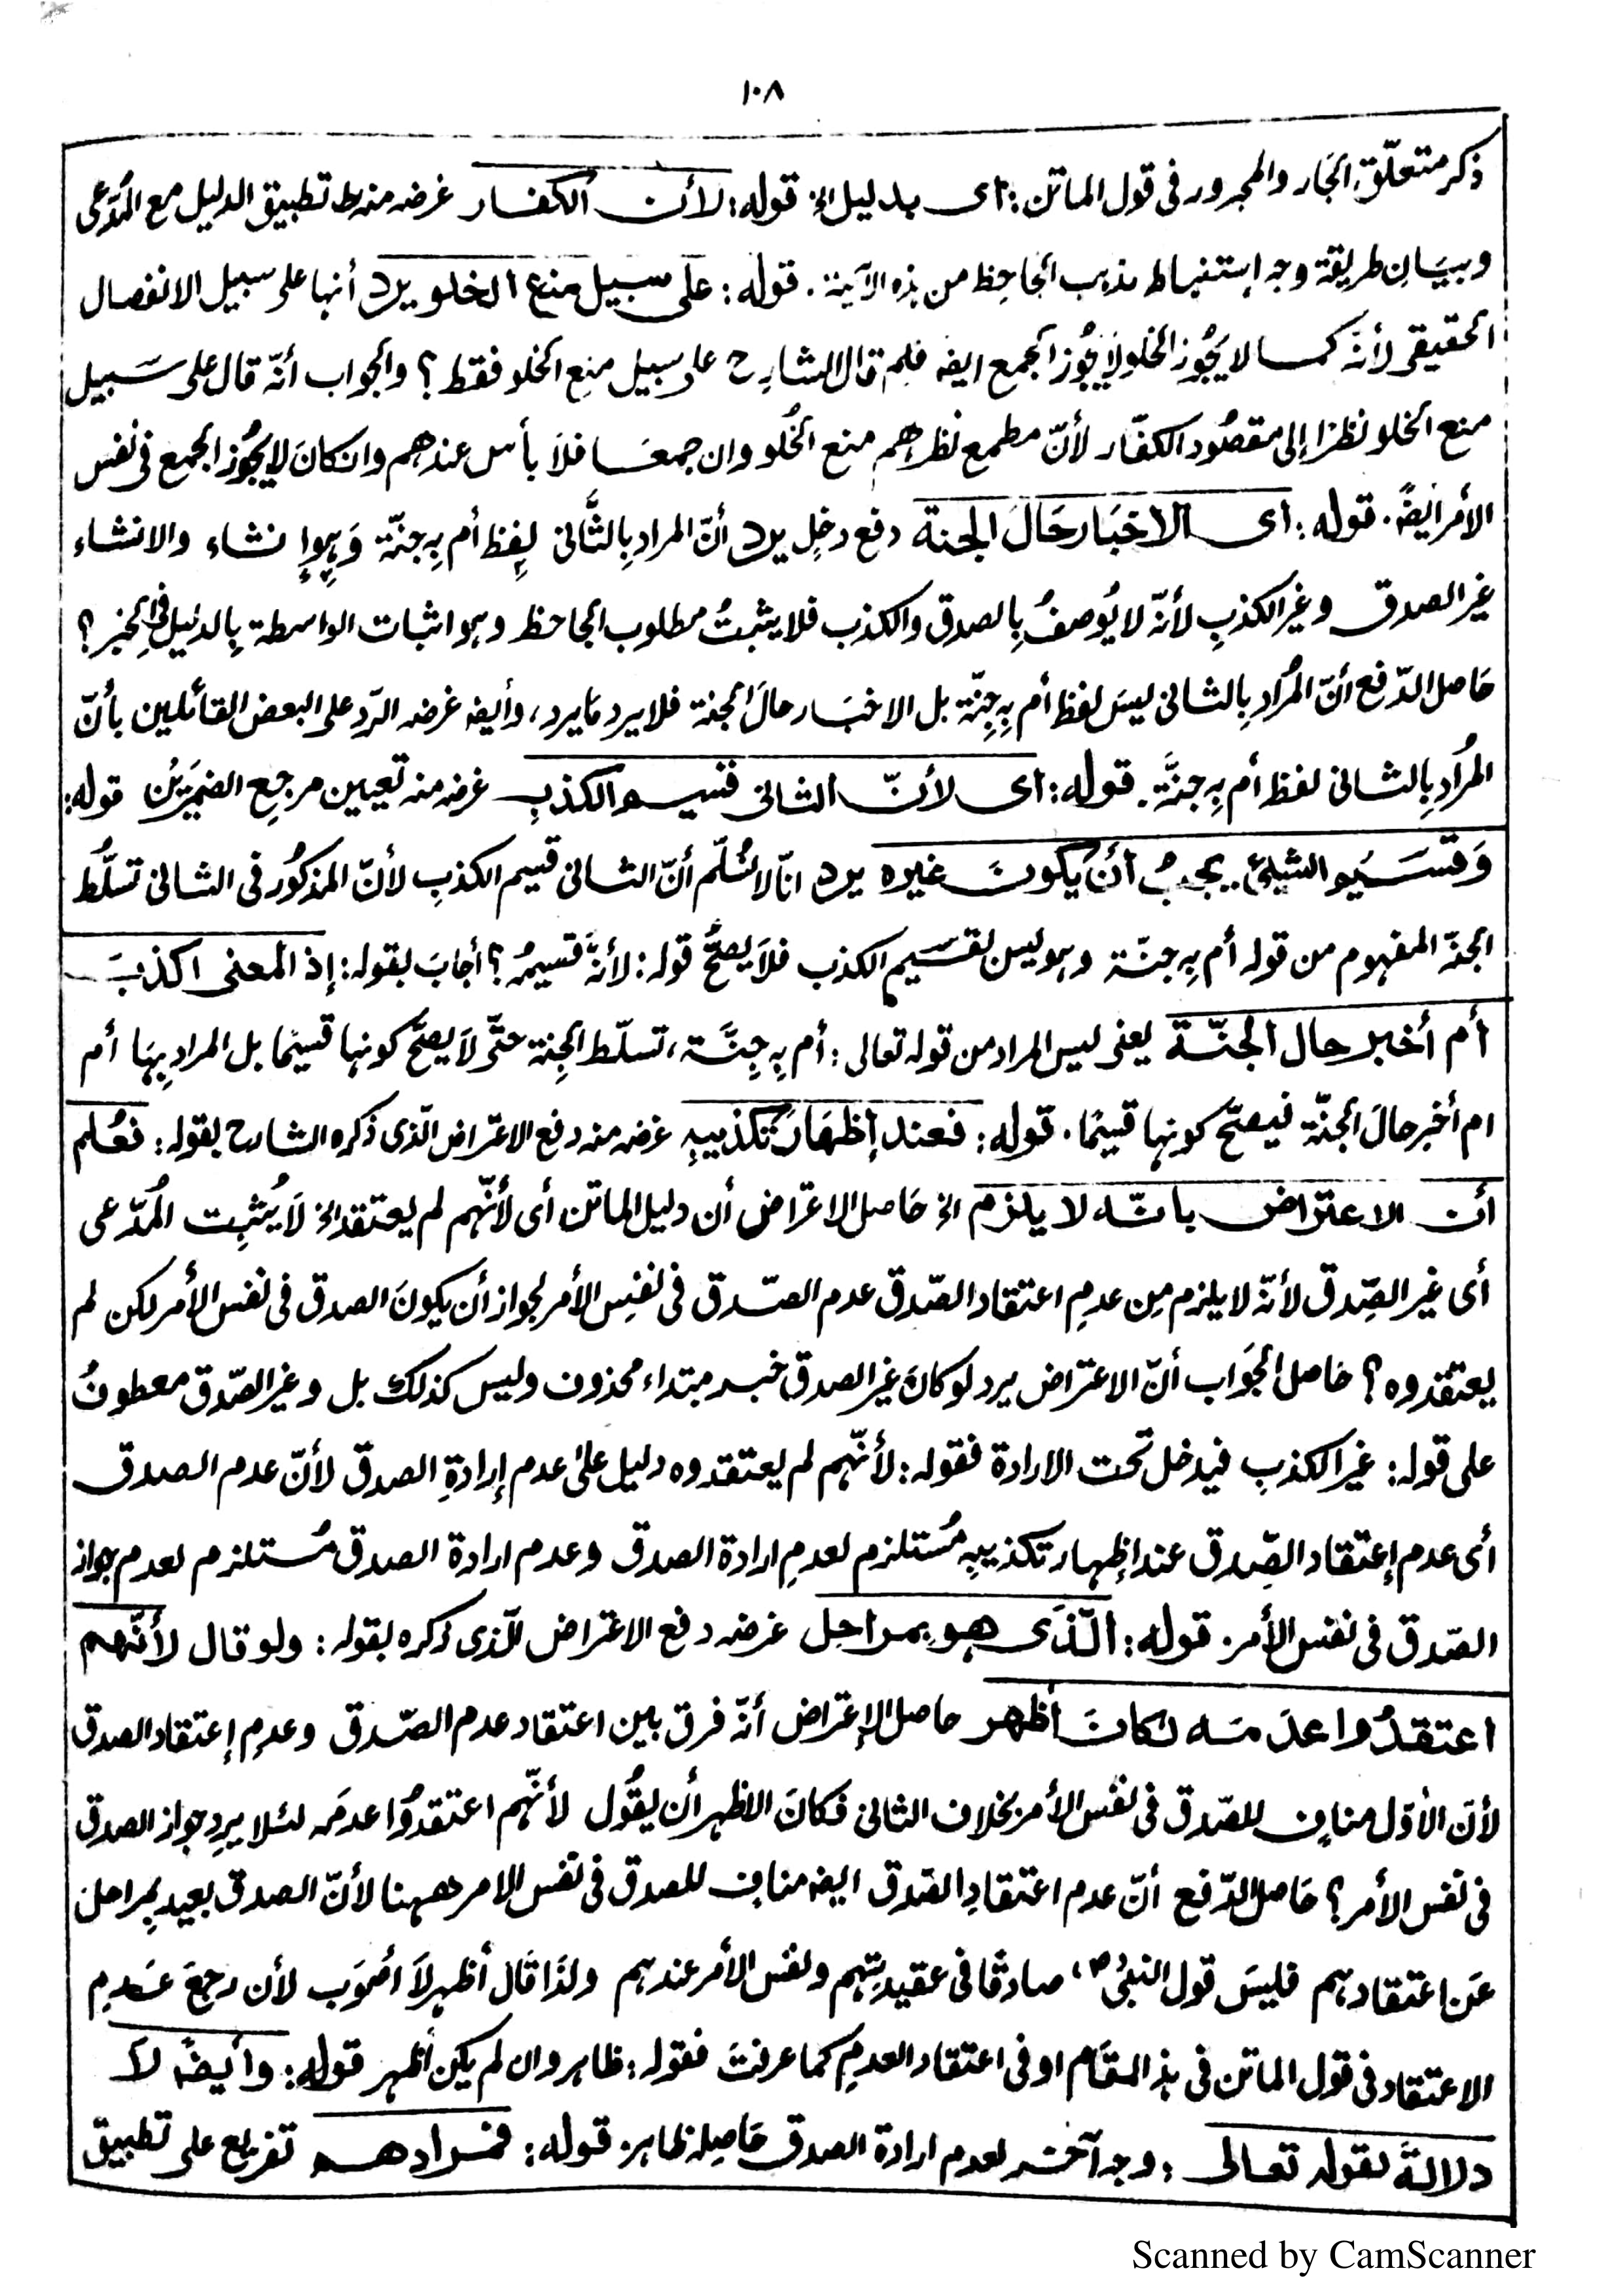 ١٠٨
ذكر متعلّق الجَار والمجرور فى قول الماتن: اى بدليل الخ قوله: لأن الكفار غرضه منه ط تطبيق الدليل مع المُدَّعى
وبيَانِ طريقة وجه إستنباط مذهب الجاحِظ من هذه الآية. قوله: على سبيل منع الخلو يرد أنها على سبيل الانفصال
الحقيقى لأنّه كما لا يَجُوز الخلو لا يجُوز الجمع ايضه فلم قال الشارح على سبيل منع الخلو فقط؟ والجواب أنّه قال على سَبيل
منع الخلو نظرًا إلى مقصُود الكفّار لأنّ مطمع نظرهم منع الخُلو وان جمعَا فلاَ بأس عندهم وانكانَ لا يجُوز الجمع فى نفس
الأمر ايضًا. قوله: اى الاخبَار حَالَ الجنة دفع دخلٍ يرد أنّ المراد بِالثَّانى لفظ أم بِه جنّة وَهوإنشاء والانشاء
غير الصدق وغير الكذبِ لأنّه لا يُوصفُ بِالصدق والكذب فلا يثبتُ مطلوب الجاحظ وهو اثبات الواسطة بِالدليل فى الخبر؟
حَاصل الدّفع أنّ المُراد بِالثانى ليسَ لفظ أم بِه جِنّة بل الاخبَار حالَ الجنة فلا يرد مَا يرد، وأيضه غرضه الرّد على البعض القائلين بأنّ
المُراد بِالثانى لفظ أم بِه جنَّة. قوله: اى لأنّ الثانى قسيم الكذبِ غرضه منه تعيين مرجعِ الضميرَيْن قوله:
وَقسَيم الشيئ يجبُ أنْ يكونَ غيره يرد انّا لا نُسلّم أنّ الثانى قسيم الكذبِ لأنّ المذكُور فى الثانى تسلُّط
الجنّ المفهوم من قوله أم بِه جنّة وهو ليس بقسَيم الكذب فلاَ يصحُّ قوله: لأنّه قسيمُه؟ أجابَ بقوله: إذ المعنى اكذبَ
أم أخبر حال الجنّة يعنى ليس المراد من قوله تعالى: أم بِه جِنَّة، تسلّط الجِنة حتّى لاَ يصحَّ كونها قسيمًا بل المراد بِهَا أم
ام أخبر حالَ الجنّة فيصحّ كونها قسيمًا. قوله: فعند إظهَار تكذيبِه غرضه منه دفع الاعتراض الّذى ذكره الشارح بقوله: فعُلم
أن الاعتراض بانّه لا يلزم الخ حَاصل الاعتراض أن دليل الماتن أى لأنّهم لم يعتقد الخ لاَ يُثبِت المُدّعى
أى غير الصِّدق لأنّه لا يلزم مِن عدمِ اعتقاد الصّدق عدم الصّدق فى نفسِ الأمر لجواز أن يكونَ الصدق فى نفس الأمر لكن لم
يعتقدوه؟ حَاصل الجَواب أنّ الاعتراض يرد لو كانَ غير الصدق خبر مبتداء محذوف وليس كذلك بل وغير الصّدق معطوفُ
على قوله: غير الكذبِ فيدخل تحت الارادة فقوله: لأنّهم لم يعتقدوه دليل على عدم إرادةِ الصدق لأنّ عدم الصدق
أى عدم إعتقاد الصِّدق عند اظهار تكذيبِه مُستلزم لعدمِ ارادة الصدق وعدم ارادة الصدق مُستلزم لعدم جواز
الصّدق فى نفس الأمر. قوله: الّذى هو بمراحل غرضه دفع الاعتراض الّذى ذكره بقوله: ولو قال لأنّهم
اعتقدُوا عدمَه لكانَ أظهر حاصل الإعتراض أنّه فرق بين اعتقاد عدم الصّدق وعدمِ إعتقاد الصدق
لأن الأوّل منافٍ للصّدق فى نفس الأمر بخلاف الثانى فكانَ الاظهر أن يقُول لأنّهم اعتقدُوا عدمَه لئلا يرِد جواز الصدق
فى نفس الأمر؟ حَاصل الدّفع أنّ عدم اعتقادِ الصّدق ايضه منافٍ للصدق فى نفس الامر ههنا لأنّ الصدق بعيد بِمراحل
عَن اعتقادهم فليسَ قول النبىُ ص، صادقًا فى عقيدتِهم ونفس الأمر عندهم ولذَا قال أظهر لاَ أصْوَب لأن رجعَ عَدمِ
الاعتقاد فى قول الماتن فى هذا المقَام او فى اعتقاد العدمِ كما عرفتَ فقوله: ظاهر وان لم يكن أظهر قوله: وأيضًا لاَ
دلالةَ لقوله تعالى: وجه آخر لعدم ارادة الصدق حَاصِله ظاهر. قوله: فمرادهم تفريع على تطبيق
Scanned by CamScanner